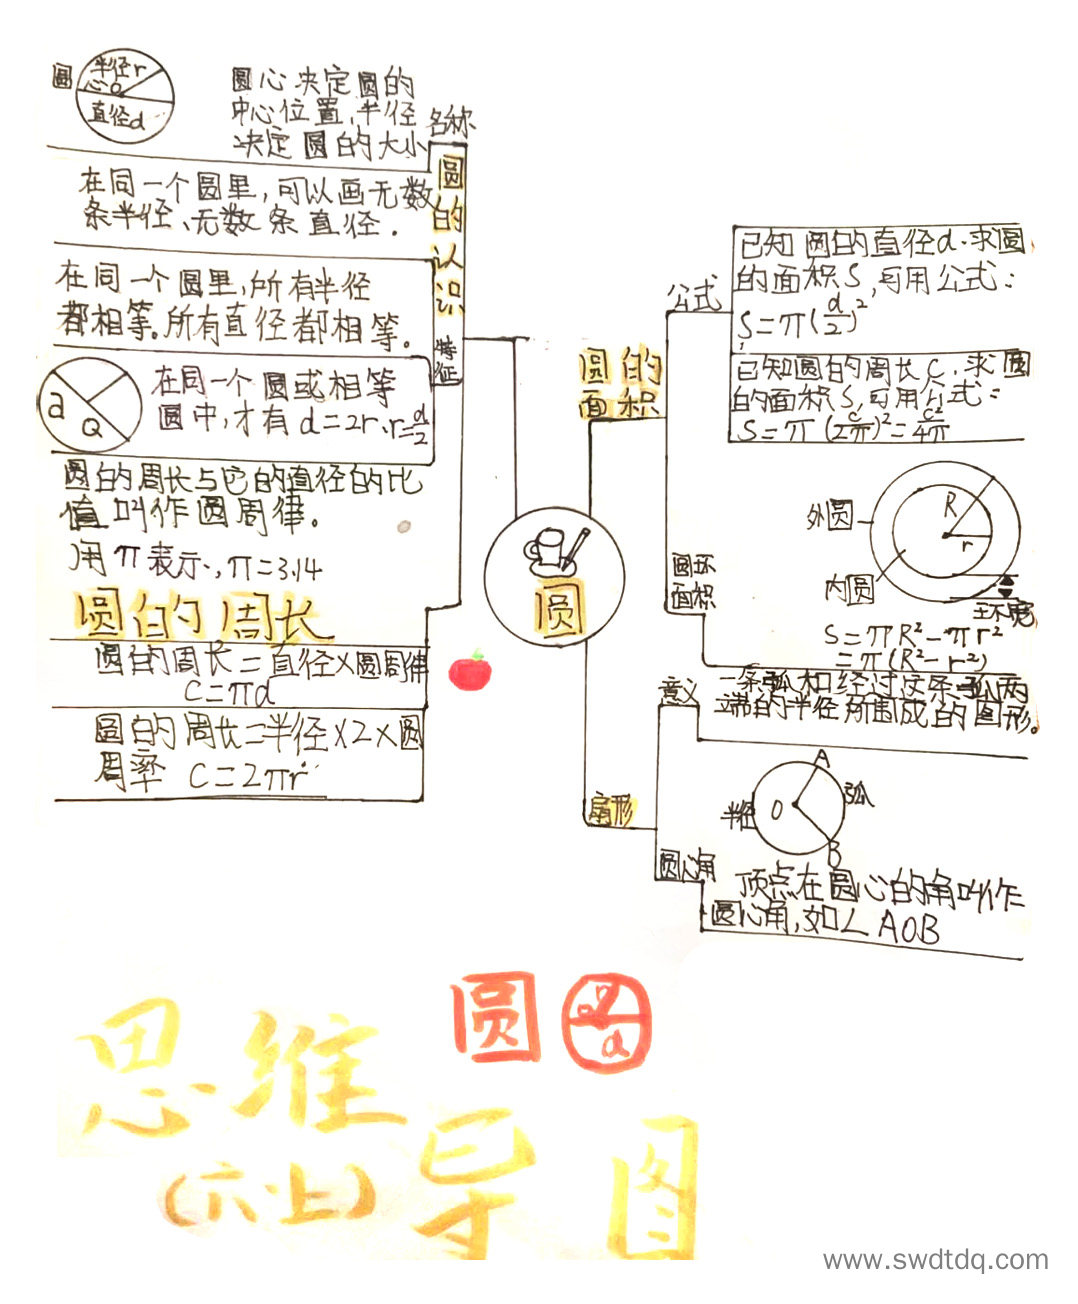 圆
半径r
心O
直径d
圆心决定圆的
中心位置,半径
决定圆的大小
名称
圆的认识
在同一个圆里,可以画无数
条半径、无数条直径.
在同一个圆里,所有半径
都相等。所有直径都相等。
特征
在同一个圆或相等
圆中,才有d=2r、r=d/2
圆的周长与它的直径的比
值叫作圆周律。
用π表示,π=3.14
圆的周长
圆的周长=直径×圆周律
C=πd
圆的周长=半径×2×圆
周率 C=2πr
圆
圆的
面积
公式
已知圆的直径d.求圆
的面积S,可用公式:
S=π(d/2)²
已知圆的周长C,求圆
的面积S,可用公式:
S=π(C/2π)²=C²/4π
圆环
面积
外圆
R
r
内圆
环宽
S=πR²-πr²
=π(R²-r²)
扇形
意义
一条弧和经过这条弧两
端的半径所围成的图形。
A
弧
半径
O
B
圆心角
顶点在圆心的角叫作
圆心角,如∠AOB
圆
d
思维
导图
(六·上)
www.swdtdq.com